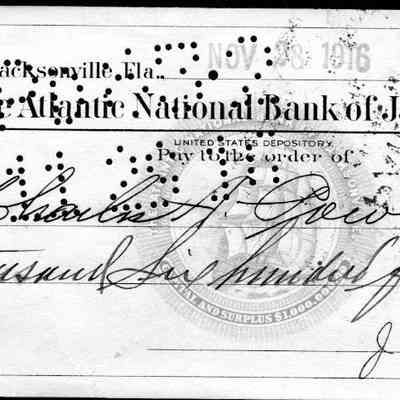 acksonville, Fla., NOV 28 1916
Atlantic National Bank of J
UNITED STATES DEPOSITORY.
Pay to the order of
Charles J. Gow
usand Six hundred
CAPITAL AND SURPLUS $1,000,
J